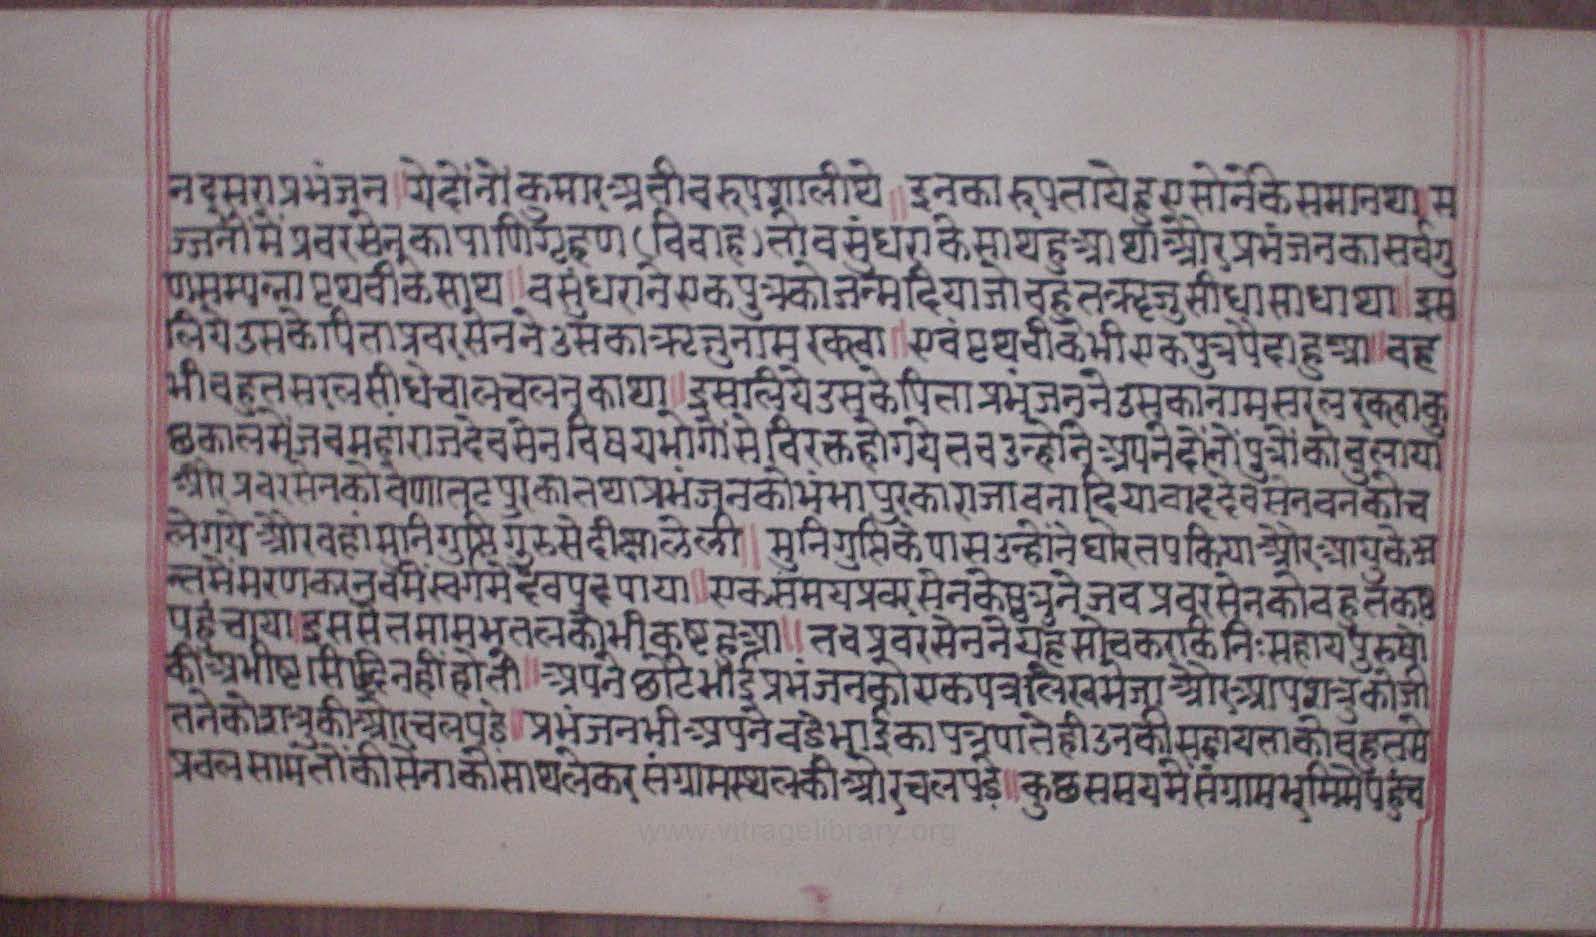 न दूसरा प्रभंजन ॥ ये दोंनों कुमार अतीव रुपशाली थे ॥ इनका रुप ताये हुए सोनेंके समान था ॥ स
ज्जनों में प्रवरसेन का पाणिगृहण (विवाह) तो वसुंधरा के साथ हुआ था और प्रभंजन का सर्वगु
णसम्पन्ना पृथवी के साथ ॥ वसुंधरा ने एक पुत्र को जन्म दिया जो वहुत ऋजु सीधा साधा था ॥ इस
लिये उसके पिता प्रवरसेन ने उसका ऋजु नाम रक्खा ॥ एवं पृथवी के भी एक पुत्र पैदा हुआ ॥ वह
भी वहुत सरल सीधे चाल चलन का था ॥ इसलिये उसके पिता प्रभंजन ने उसका नाम सरल रक्खा कु
छ काल में जव महाराज देवसेन विषय भोगों से विरक्त हो गये तव उन्होंने अपने दोंनों पुत्रों को वुलाया
और प्रवरसेन को वेणातटपुर का तथा प्रभंजन को भंभापुर का राजा वना दिया वाद देवसेन वन को च
ले गये और वहां मुनिगुप्ति गुरु से दीक्षा ले ली ॥ मुनिगुप्ति के पास उन्होंने घोर तप किया और आयु के अ
न्त में मरण कर नवमें स्वर्ग में देव पद पाया ॥ एक समय प्रवरसेन के शत्रु ने जव प्रवरसेन को वहुत कष्ट
पहुंचाया ॥ इससे तमाम भूतल को भी कष्ट हुआ ॥ तव प्रवरसेन ने यह सोचकर कि निःसहाय पुरुषों
की अभीष्ट सिद्धि नहीं होती ॥ अपने छोटे भाई प्रभंजन को एक पत्र लिख भेजा और आप शत्रु को जी
तने को शत्रु की और चल पडे ॥ प्रभंजन भी अपने वडे भाई का पत्र पाते ही उनकी सहायता को वहुत से
प्रवल सामंतों की सेना को साथ लेकर संग्रामस्थल की और चल पडे ॥ कुछ समय में संग्राम भूमि में पहुंच
www.vitragelibrary.org